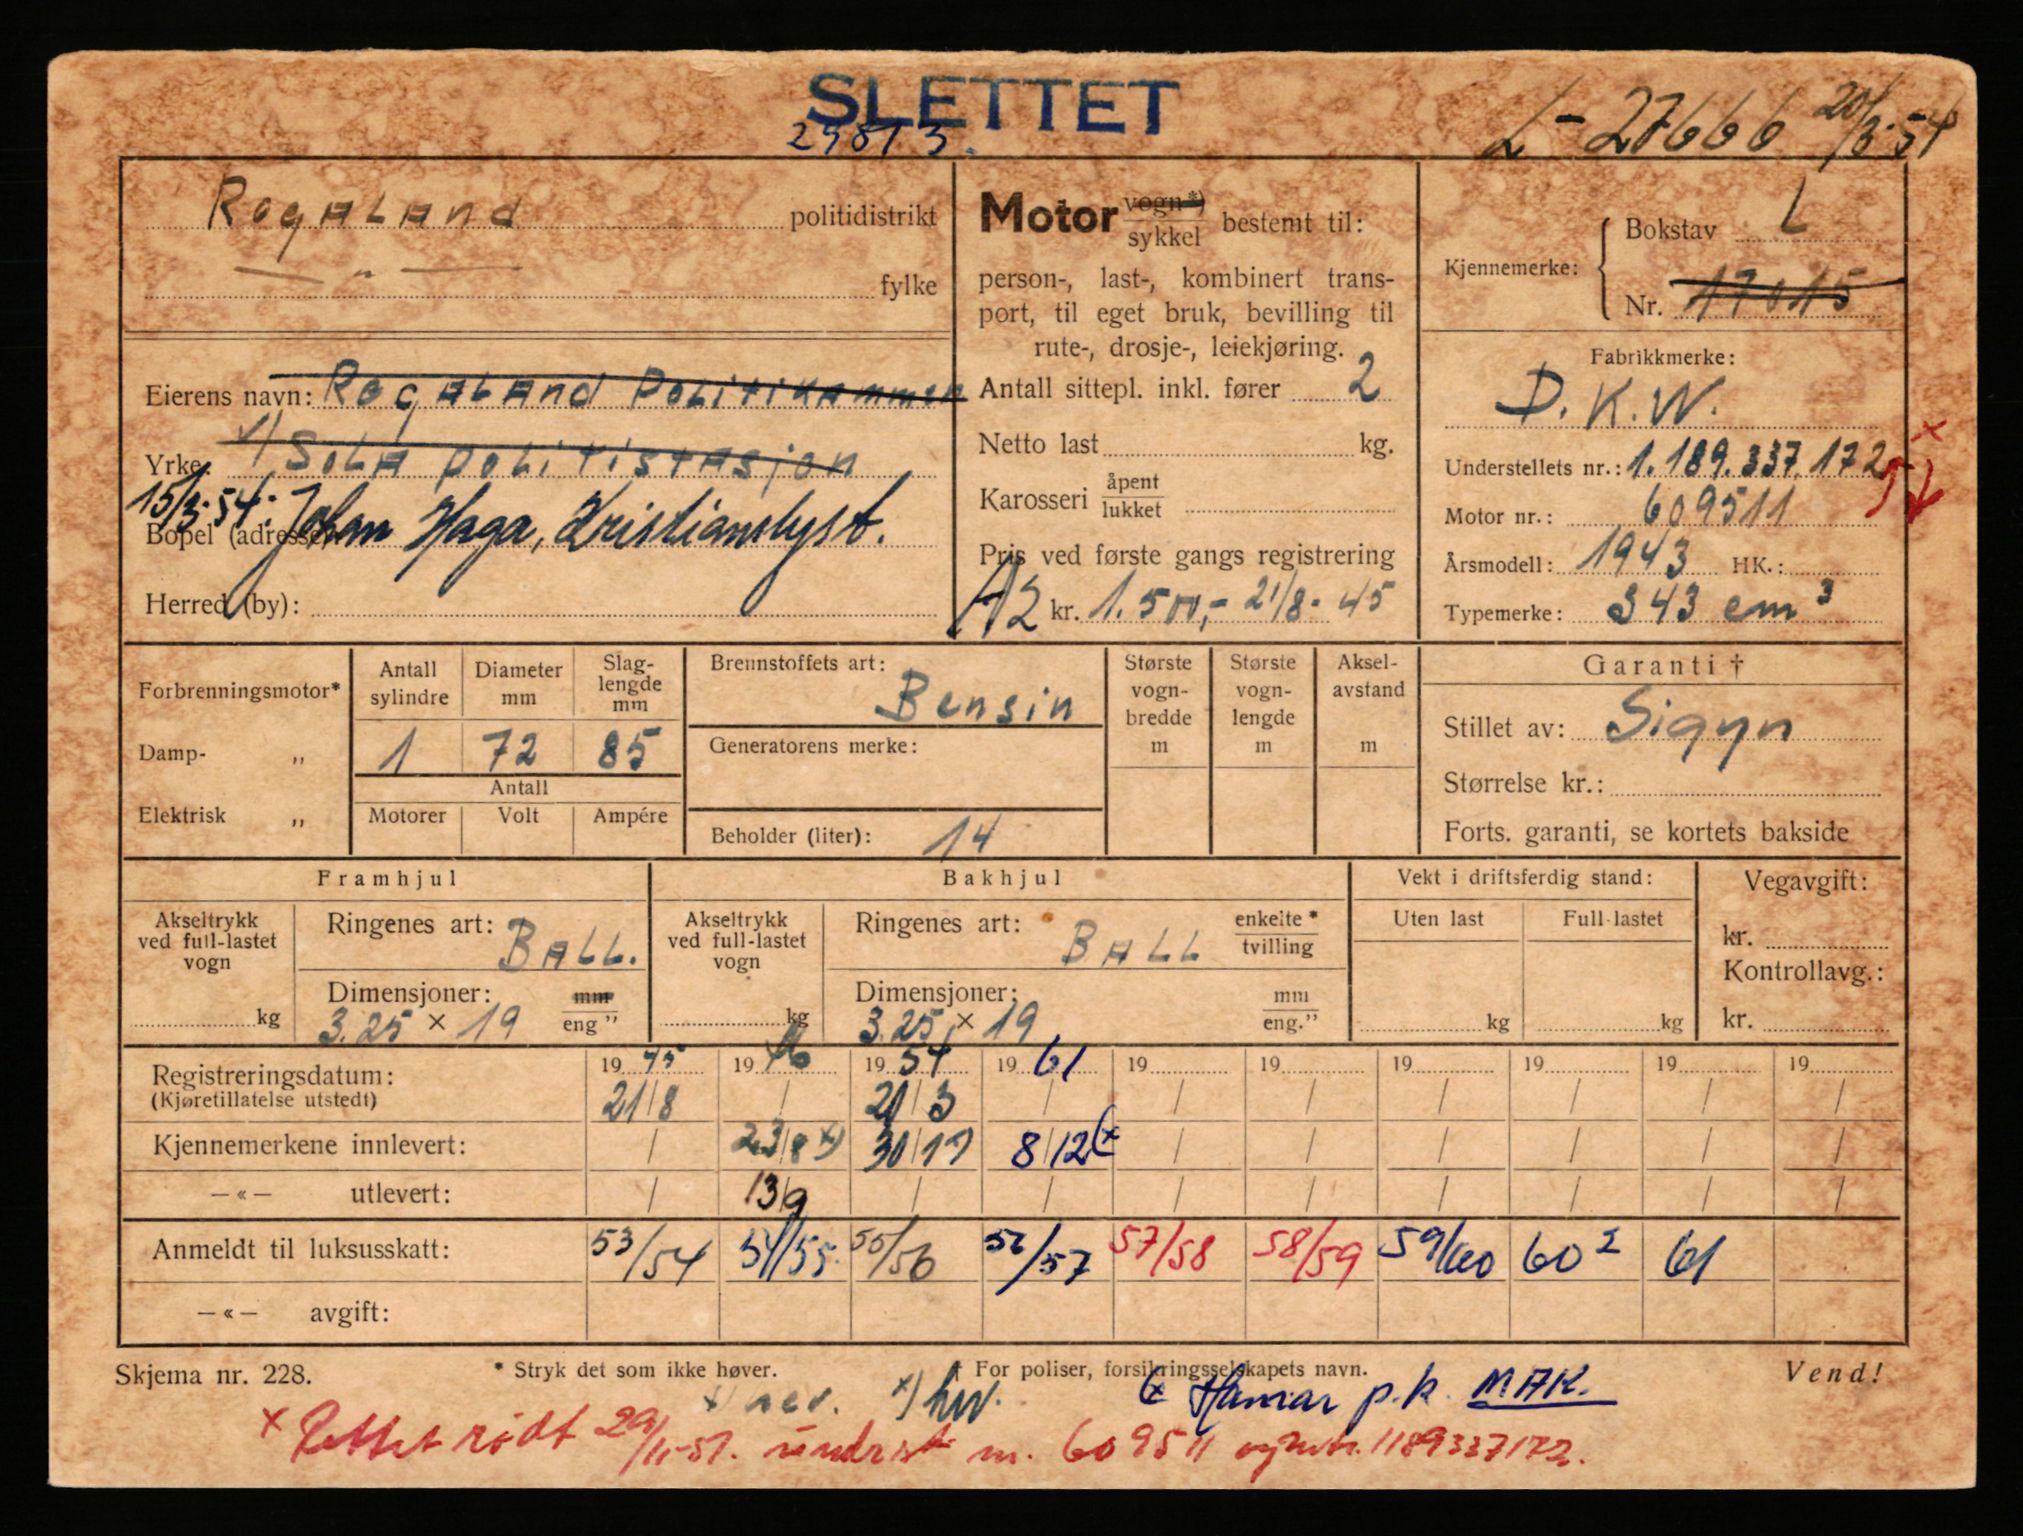 SLETTET
L-27666 20/3-54
Rogaland politidistrikt
— „ — fylke
Motor vogn*) / sykkel bestemt til:
person-, last-, kombinert trans-
port, til eget bruk, bevilling til
rute-, drosje-, leiekjøring.
Antall sittepl. inkl. fører 2
Netto last kg.
Karosseri åpent / lukket
Pris ved første gangs registrering
A2 kr. 1.500,- 21/8-45
Kjennemerke: Bokstav L
Nr. 17015
Fabrikkmerke:
D.K.W.
Understellets nr.: 1.189.337.172
Motor nr.: 609511
Årsmodell: 1943 HK.:
Typemerke: 343 cm³
Eierens navn: Rogaland Politikammer
Yrke: Sola politistasjon
15/3-54: Johan Haga, Kristianslyst.
Bopel (adresse):
Herred (by):
Forbrenningsmotor*
Damp- „
Elektrisk „
Antall sylindre 1
Diameter mm 72
Slag-lengde mm 85
Antall
Motorer Volt Ampére
Brennstoffets art:
Bensin
Generatorens merke:
Beholder (liter): 14
Største vogn-bredde m
Største vogn-lengde m
Aksel-avstand m
Garanti †
Stillet av: Sigyn
Størrelse kr.:
Forts. garanti, se kortets bakside
Framhjul
Akseltrykk ved full-lastet vogn
kg
Ringenes art: BALL.
Dimensjoner: mm / eng "
3.25 × 19
Bakhjul
Akseltrykk ved full-lastet vogn
kg
Ringenes art: BALL enkelte * / tvilling
Dimensjoner: mm / eng."
3.25 × 19
Vekt i driftsferdig stand:
Uten last Full-lastet
kg kg
Vegavgift:
kr.
Kontrollavg.:
kr.
19 45 19 46 19 54 19 61 19 19 19 19 19 19
Registreringsdatum: 21/8 / 20/3 / / / / / / /
(Kjøretillatelse utstedt)
Kjennemerkene innlevert: / 23/8 x) 30/11 8/12 (x / / / / / /
—«— utlevert: / 13/9 / / / / / / / /
Anmeldt til luksusskatt: 53/54 54/55 55/56 56/57 57/58 58/59 59/60 60² 61
—«— avgift:
Skjema nr. 228.
* Stryk det som ikke høver.
† For poliser, forsikringsselskapets navn.
Vend!
(x Hamar p.k. MAK.
x Rettet rødt 29/11-57. m. 609511 1189337172.